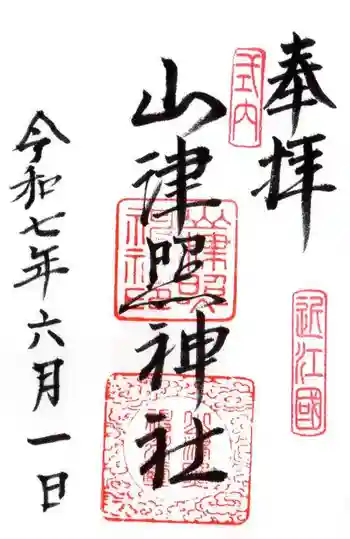 奉拝
式内
近江國
山津照神社
令和七年六月一日